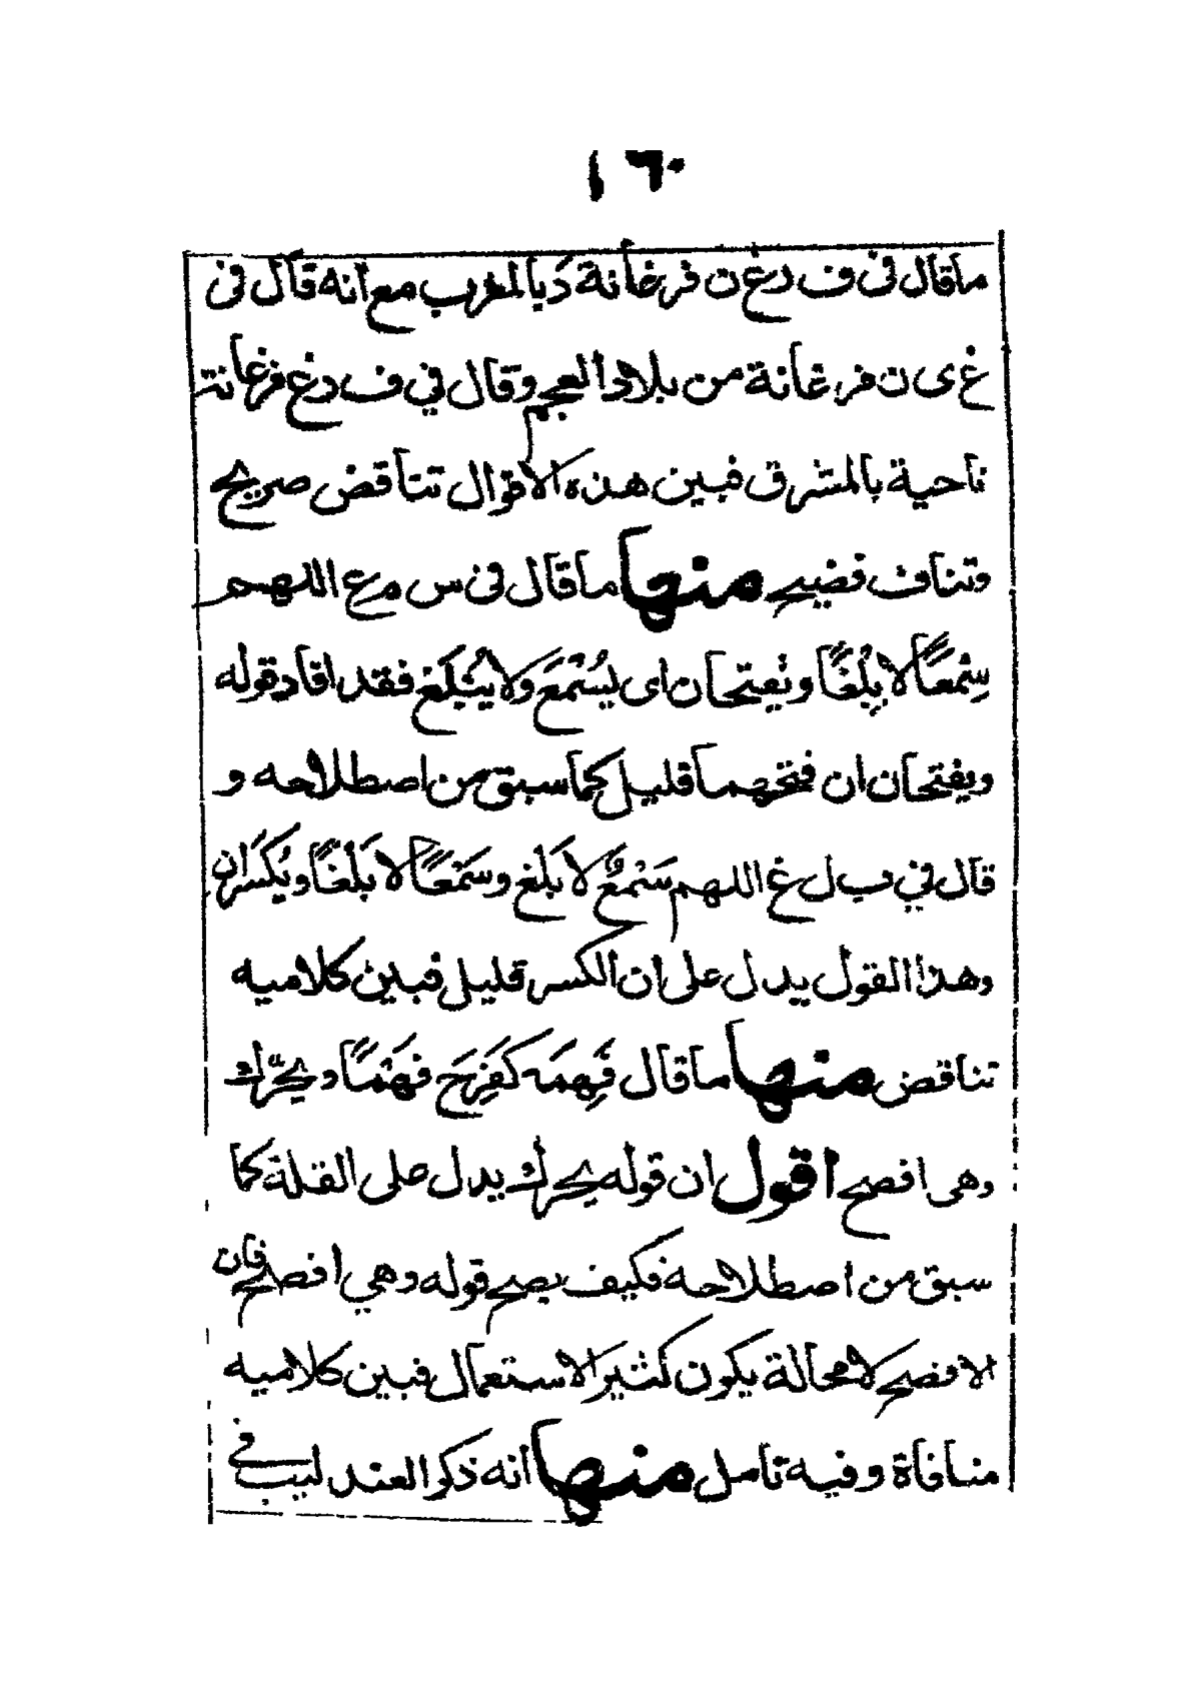 ١٦٠
ما قال فى ف د غ ن فرغانة د بالمغرب مع انه قال فى
غ ى ن فرغانة من بلاد العجم وقال في ف د غ فرغانة
ناحية بالمشرق فبين هذه الاقوال تناقض صريح
وتناف فضيح منها ما قال فى س م ع اللهم
سِمْعًا لا بِلْغًا ويفتحان اى يُسْمَعُ ولا يُبْلَغ فقد افاد قوله
ويفتحان ان فتحهما قليل كما سبق من اصطلاحه و
قال في ب ل غ اللهم سَمْعٌ لا بَلْغ وسَمْعًا لا بَلْغًا ويُكْسَران
وهذا القول يدل على ان الكسر قليل فبين كلاميه
تناقض منها ما قال فَهِمَه كفَرِحَ فَهْمًا ويحرّك
وهى افصح اقول ان قوله يحرك يدل على القلة كما
سبق من اصطلاحه فكيف يصح قوله وهي افصح فان
الافصح لا محالة يكون كثير الاستعمال فبين كلاميه
منافاة وفيه تامل منها انه ذكر العندليب فى